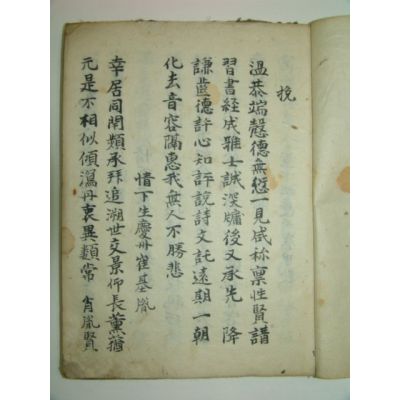 挽
溫恭端慤德無愆一見咸称禀性賢譜
習書経成雅士誠深墉後又承先 降
謙齒德許心知評說詩文託遠期一朝
化去音容隔惠我無人不勝悲
情下生慶州崔基胤
幸居同閈類承拜追溯世交景仰長薰蕕
元是不相似傾瀉丹衷異類常 肖胤賢